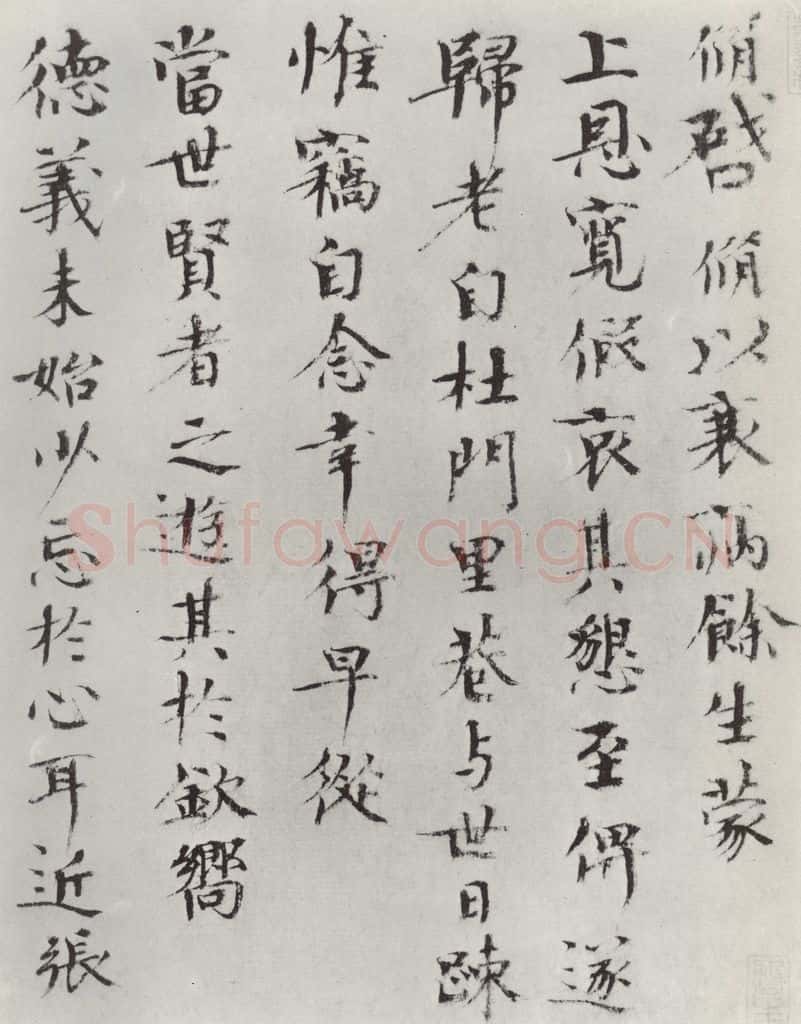 脩啓脩以衰病餘生蒙
上恩寬假哀其懇至俾遂
歸老自杜門里巷与世日疎
惟竊自念幸得早從
當世賢者之遊其於欽嚮
德義未始少忘於心耳近張
Shufawang.CN